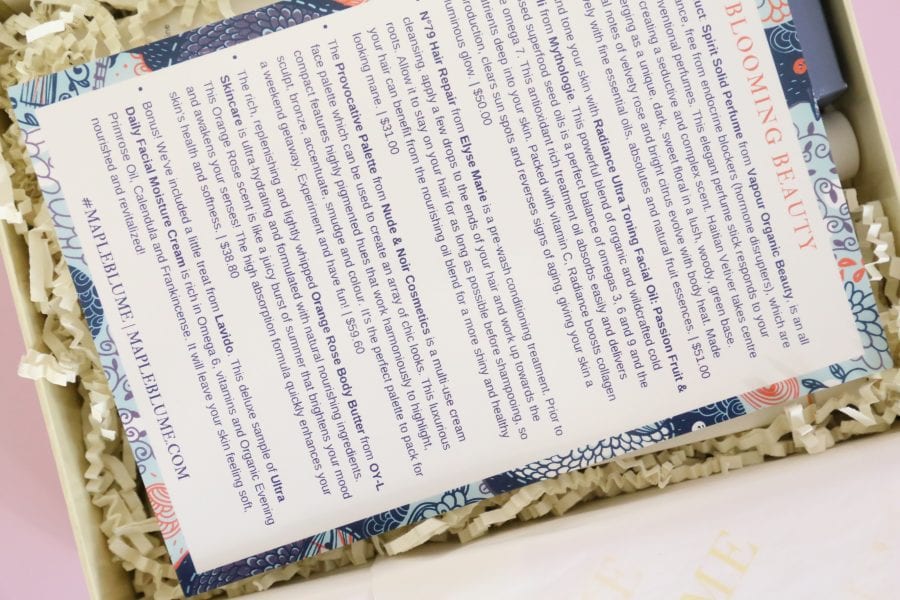 BLOOMING BEAUTY
uct Spirit Solid Perfume from Vapour Organic Beauty, is an all
ance, free from endocrine blockers (hormone disrupters), which are
nventional perfumes. This elegant perfume stick responds to your
creating a seductive and complex scent. Haitian Vetiver takes centre
erging as a unique, dark, sweet floral in a lush, woody, green base.
al notes of velvety rose and bright citrus evolve with body heat. Made
vely with fine essential oils, absolutes and natural fruit essences. | $51.00
and tone your skin with Radiance Ultra Toning Facial Oil: Passion Fruit &
li from Mythologie. This powerful blend of organic and wildcrafted cold
ssed superfood seed oils is a perfect balance of omegas 3, 6 and 9 and the
e omega 7. This antioxidant rich treatment oil absorbs easily and delivers
utrients deep into your skin. Packed with vitamin C, Radiance boosts collagen
production, clears sun spots and reverses signs of aging giving your skin a
uminous glow. | $50.00
N°79 Hair Repair from Elyse Marie is a pre-wash conditioning treatment. Prior to
cleansing, apply a few drops to the ends of your hair and work up towards the
roots. Allow it to stay on your hair for as long as possible before shampooing, so
your hair can benefit from the nourishing oil blend for a more shiny and healthy
looking mane. | $31.00
• The Provocative Palette from Nude & Noir Cosmetics is a multi-use cream
face palette which can be used to create an array of chic looks. This luxurious
compact features highly pigmented hues that work harmoniously to highlight,
sculpt, bronze, accentuate, smudge and colour. It's the perfect palette to pack for
a weekend getaway. Experiment and have fun! | $59.60
• The rich, replenishing and lightly whipped Orange Rose Body Butter from OY-L
Skincare is ultra hydrating and formulated with natural nourishing ingredients.
This Orange Rose scent is like a juicy burst of summer that brightens your mood
and awakens your senses! The high absorption formula quickly enhances your
skin's health and softness. | $38.80
• Bonus! We've included a little treat from Lavido. This deluxe sample of Ultra
Daily Facial Moisture Cream is rich in Omega 6, vitamins and Organic Evening
Primrose Oil, Calendula and Frankincense. It will leave your skin feeling soft,
nourished and revitalized!
#MAPLEBLUME | MAPLEBLUME.COM
ME